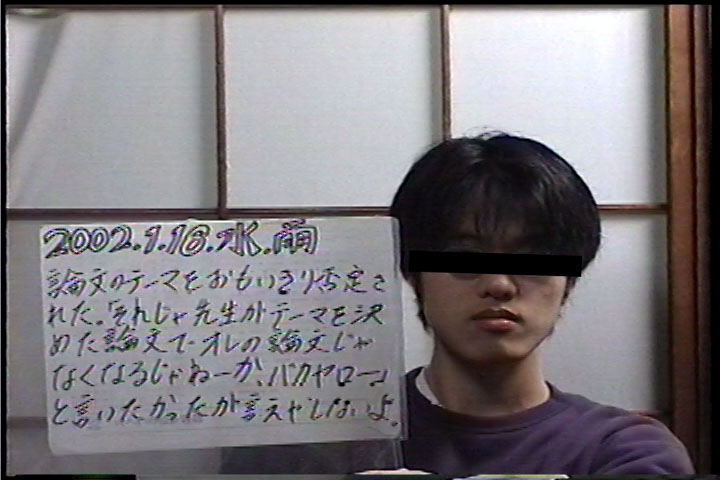 2002.1.16.水.雨
論文のテーマをおもいきり否定さ
れた。「それじゃ先生がテーマを決
めた論文でオレの論文じゃ
なくなるじゃねーか、バカヤロー」
と言いたかったが言えやしないよ。